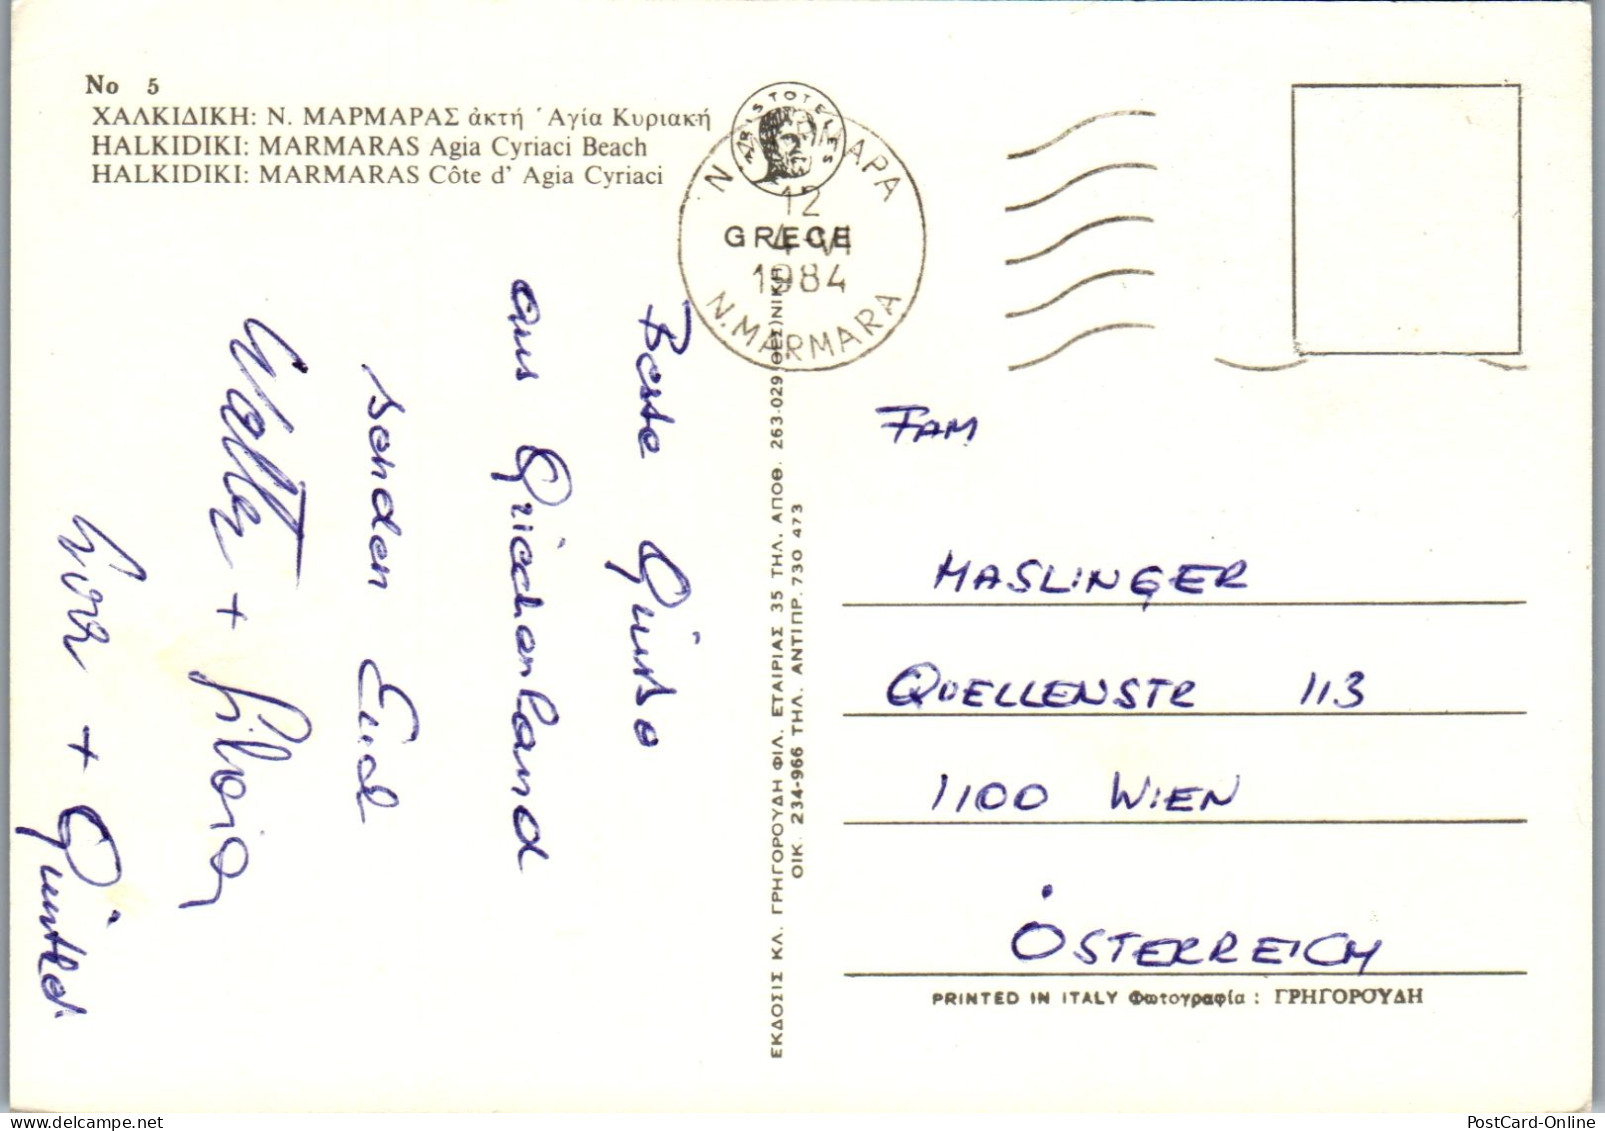 No 5
ΧΑΛΚΙΔΙΚΗ: Ν. ΜΑΡΜΑΡΑΣ ἀκτή Ἁγία Κυριακή
HALKIDIKI: MARMARAS Agia Cyriaci Beach
HALKIDIKI: MARMARAS Côte d' Agia Cyriaci
ARISTOTELES
Ν. ΜΑΡΜΑΡΑ
12
GRECE
4-VI
1984
N. MARMARA
Beste Grüsse
aus Griechenland
senden Euch
Walter + Silvia
+ Günther
FAM
MASLINGER
QUELLENSTR 113
1100 WIEN
ÖSTERREICH
ΕΚΔΟΣΙΣ ΚΛ. ΓΡΗΓΟΡΟΥΔΗ ΦΙΛ. ΕΤΑΙΡΙΑΣ 35 ΤΗΛ. ΑΠΟΘ. 263-029 (ΘΕΣ)ΝΙΚΗ
ΟΙΚ. 234-966 ΤΗΛ. ΑΝΤΙΠΡ. 730 473
PRINTED IN ITALY Φωτογραφία : ΓΡΗΓΟΡΟΥΔΗ
PostCard-Online